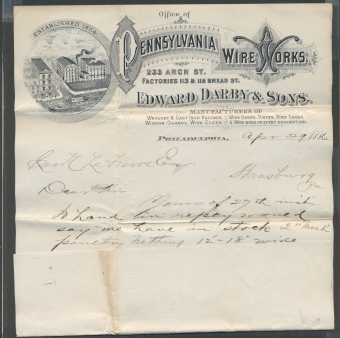 Office of
ESTABLISHED 1854
PENNSYLVANIA WIRE WORKS,
233 ARCH ST.
FACTORIES 113 & 115 BREAD ST.
EDWARD DARBY & SONS.
MANUFACTURERS OF
WROUGHT & CAST IRON RAILINGS,
WINDOW GUARDS, WIRE CLOTH
WIRE GOODS, SIEVES, BIRD CAGES
& WIRE WORK OF EVERY DESCRIPTION.
PHILADELPHIA, Apr 29 188
Esq
Strasburg
Dear Sir
Yours of 27th inst
to hand in reply would
say we have in stock 2" mesh
poultry netting 12"-18" wide